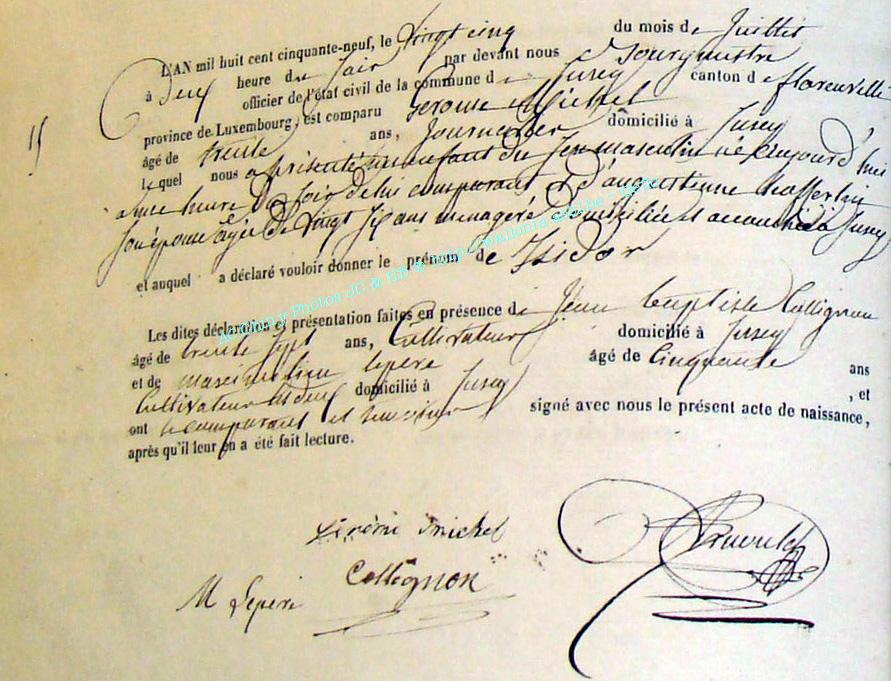 L'AN mil huit cent cinquante-neuf, le Vingt cinq du mois de Juillet
à deux heure du soir par devant nous Bourgmestre
officier de l'état civil de la commune de Jusey canton de florenville
province de Luxembourg, est comparu Michel
âgé de trente ans, Journalier domicilié à Jusey,
lequel nous a présenté un enfant du sex masculin né aujourd'hui
a une heure du soir de lui comparant et d'augustenne
son épouse agée de Vingt six ans menagère domiciliée et accouchée à Jusey
et auquel a déclaré vouloir donner le prénom de Isidor
Les dites déclaration et présentation faites en présence de Jean baptiste Collignon
âgé de trente sept ans, Cultivateur domicilié à Jusey
et de maximilien lepere âgé de Cinquante ans
Cultivateur domicilié à Jusey, et
ont le comparant et signé avec nous le présent acte de naissance,
après qu'il leur en a été fait lecture.
michel
Collignon
M Lepere